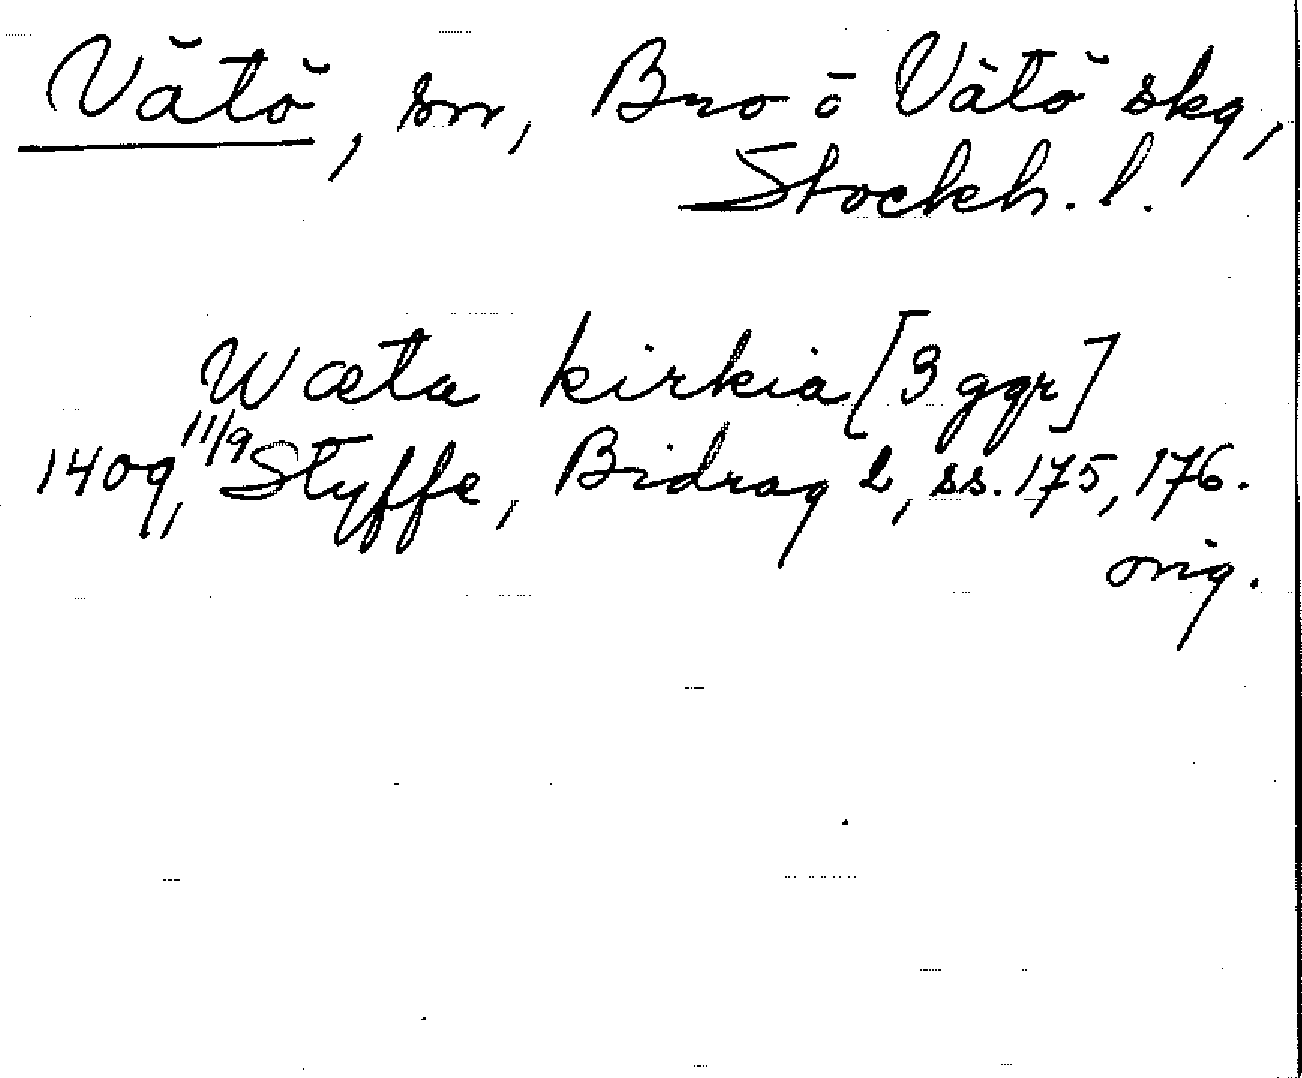 Vätö, sn, Bro o Vätö skg,
Stockh. l.
Wæta kirkia [3 ggr]
1409 11/9, Styffe, Bidrag 2, ss. 175, 176.
orig.